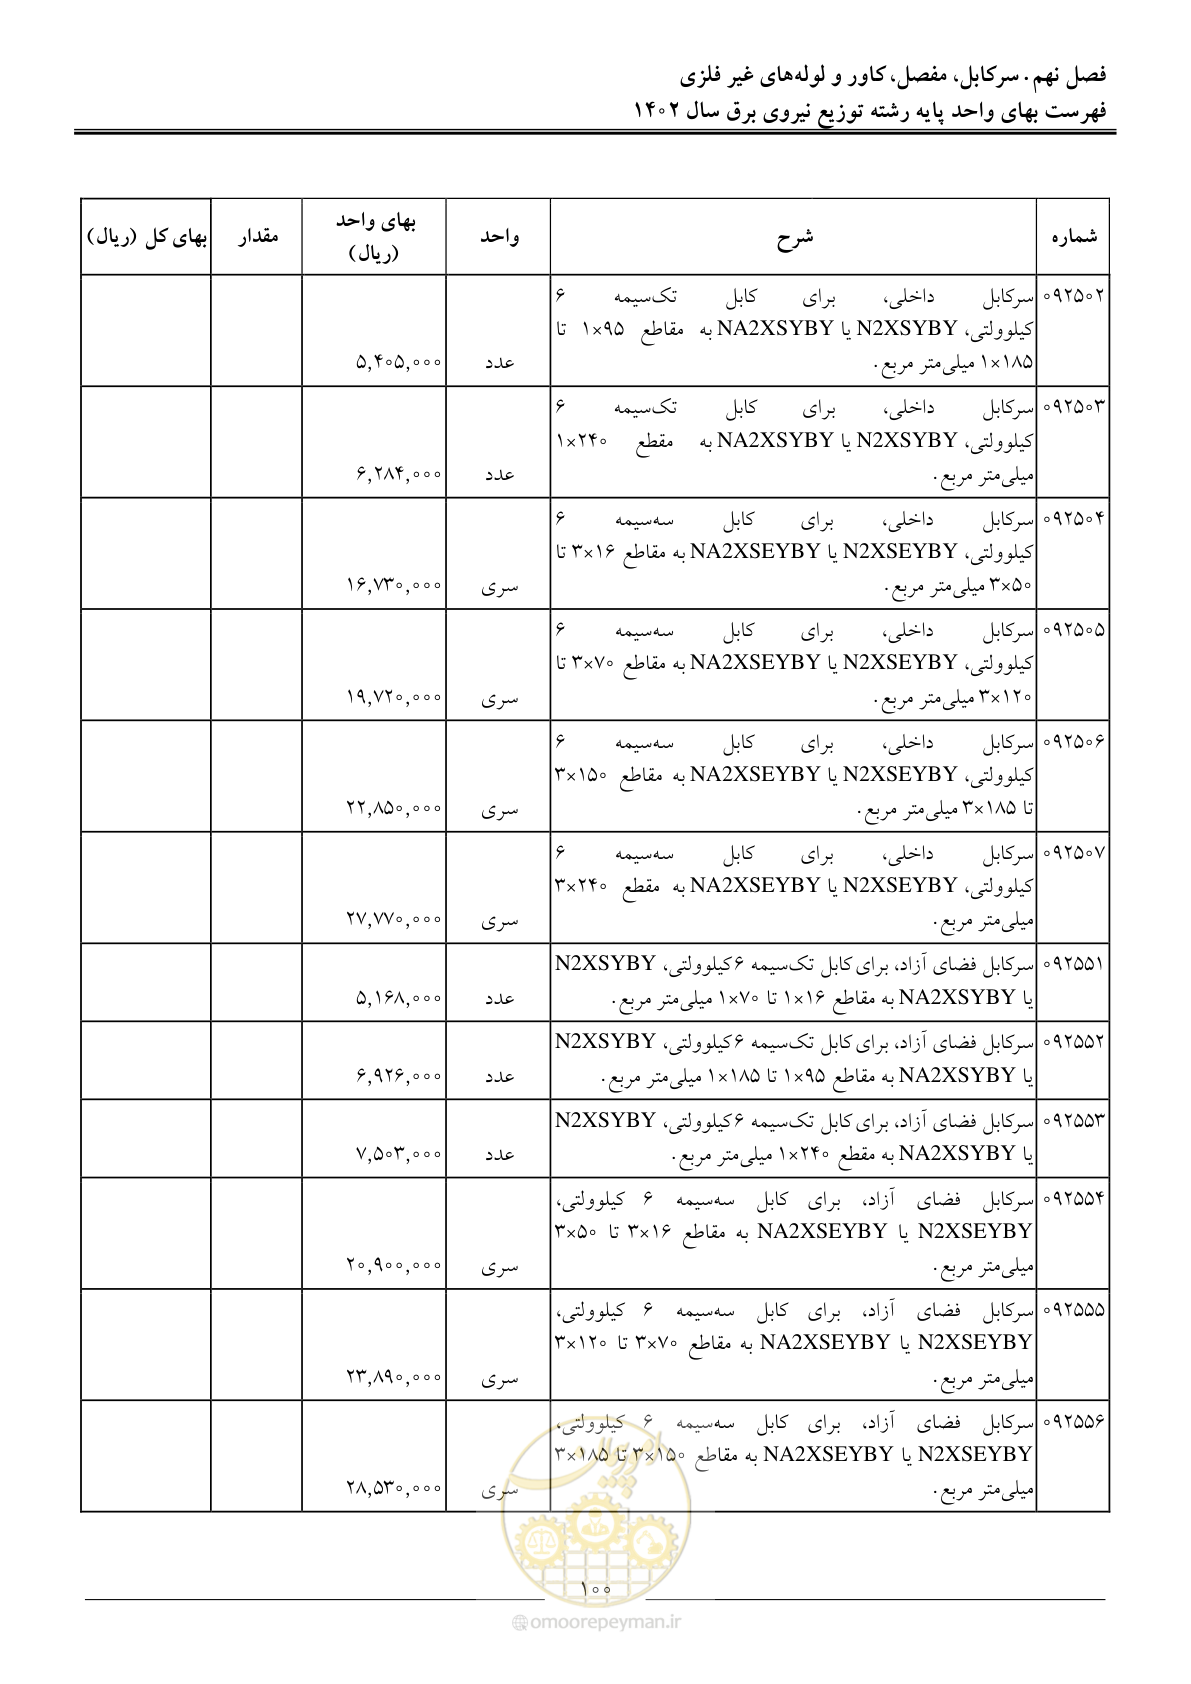 فصل نهم. سرکابل، مفصل، کاور و لوله‌های غیر فلزی
فهرست بهای واحد پایه رشته توزیع نیروی برق سال ۱۴۰۲
شماره شرح واحد بهای واحد (ریال) مقدار بهای کل (ریال)
۰۹۲۵۰۲ سرکابل داخلی، برای کابل تک‌سیمه ۶
کیلوولتی، N2XSYBY یا NA2XSYBY به مقاطع ۹۵×۱ تا
۱۸۵×۱ میلی‌متر مربع. عدد ۵,۴۰۵,۰۰۰
۰۹۲۵۰۳ سرکابل داخلی، برای کابل تک‌سیمه ۶
کیلوولتی، N2XSYBY یا NA2XSYBY به مقطع ۲۴۰×۱
میلی‌متر مربع. عدد ۶,۲۸۴,۰۰۰
۰۹۲۵۰۴ سرکابل داخلی، برای کابل سه‌سیمه ۶
کیلوولتی، N2XSEYBY یا NA2XSEYBY به مقاطع ۱۶×۳ تا
۵۰×۳ میلی‌متر مربع. سری ۱۶,۷۳۰,۰۰۰
۰۹۲۵۰۵ سرکابل داخلی، برای کابل سه‌سیمه ۶
کیلوولتی، N2XSEYBY یا NA2XSEYBY به مقاطع ۷۰×۳ تا
۱۲۰×۳ میلی‌متر مربع. سری ۱۹,۷۲۰,۰۰۰
۰۹۲۵۰۶ سرکابل داخلی، برای کابل سه‌سیمه ۶
کیلوولتی، N2XSEYBY یا NA2XSEYBY به مقاطع ۱۵۰×۳
تا ۱۸۵×۳ میلی‌متر مربع. سری ۲۲,۸۵۰,۰۰۰
۰۹۲۵۰۷ سرکابل داخلی، برای کابل سه‌سیمه ۶
کیلوولتی، N2XSEYBY یا NA2XSEYBY به مقطع ۲۴۰×۳
میلی‌متر مربع. سری ۲۷,۷۷۰,۰۰۰
۰۹۲۵۵۱ سرکابل فضای آزاد، برای کابل تک‌سیمه ۶کیلوولتی، N2XSYBY
یا NA2XSYBY به مقاطع ۱۶×۱ تا ۷۰×۱ میلی‌متر مربع. عدد ۵,۱۶۸,۰۰۰
۰۹۲۵۵۲ سرکابل فضای آزاد، برای کابل تک‌سیمه ۶کیلوولتی، N2XSYBY
یا NA2XSYBY به مقاطع ۹۵×۱ تا ۱۸۵×۱ میلی‌متر مربع. عدد ۶,۹۲۶,۰۰۰
۰۹۲۵۵۳ سرکابل فضای آزاد، برای کابل تک‌سیمه ۶کیلوولتی، N2XSYBY
یا NA2XSYBY به مقطع ۲۴۰×۱ میلی‌متر مربع. عدد ۷,۵۰۳,۰۰۰
۰۹۲۵۵۴ سرکابل فضای آزاد، برای کابل سه‌سیمه ۶ کیلوولتی،
N2XSEYBY یا NA2XSEYBY به مقاطع ۱۶×۳ تا ۵۰×۳
میلی‌متر مربع. سری ۲۰,۹۰۰,۰۰۰
۰۹۲۵۵۵ سرکابل فضای آزاد، برای کابل سه‌سیمه ۶ کیلوولتی،
N2XSEYBY یا NA2XSEYBY به مقاطع ۷۰×۳ تا ۱۲۰×۳
میلی‌متر مربع. سری ۲۳,۸۹۰,۰۰۰
۰۹۲۵۵۶ سرکابل فضای آزاد، برای کابل سه‌سیمه ۶ کیلوولتی،
N2XSEYBY یا NA2XSEYBY به مقاطع ۱۵۰×۳ تا ۱۸۵×۳
میلی‌متر مربع. سری ۲۸,۵۳۰,۰۰۰
امور پیمان
۱۰۰
omoorepeyman.ir